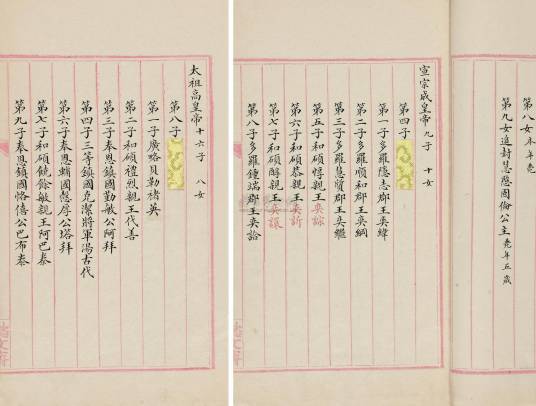 第八女 未年甍
第九女追封慧愍固倫公主 甍年五歲
宣宗成皇帝 九子 十女
第四子
第一子多羅隱志郡王奕緯
第二子多羅順和郡王奕綱
第三子多羅慧質郡王奕繼
第五子和碩惇親王奕誴
第六子和碩恭親王奕訢
第七子和碩醇親王奕譞
第八子多羅鍾端郡王奕詥
太祖高皇帝 十六子 八女
第八子
第一子廣略貝勒褚英
第二子和碩禮烈親王代善
第三子奉恩鎮國勤敏公阿拜
第四子三等鎮國克潔將軍湯古代
第六子奉恩輔國愨厚公塔拜
第七子和碩饒餘敏親王阿巴泰
第九子奉恩鎮國恪僖公巴布泰